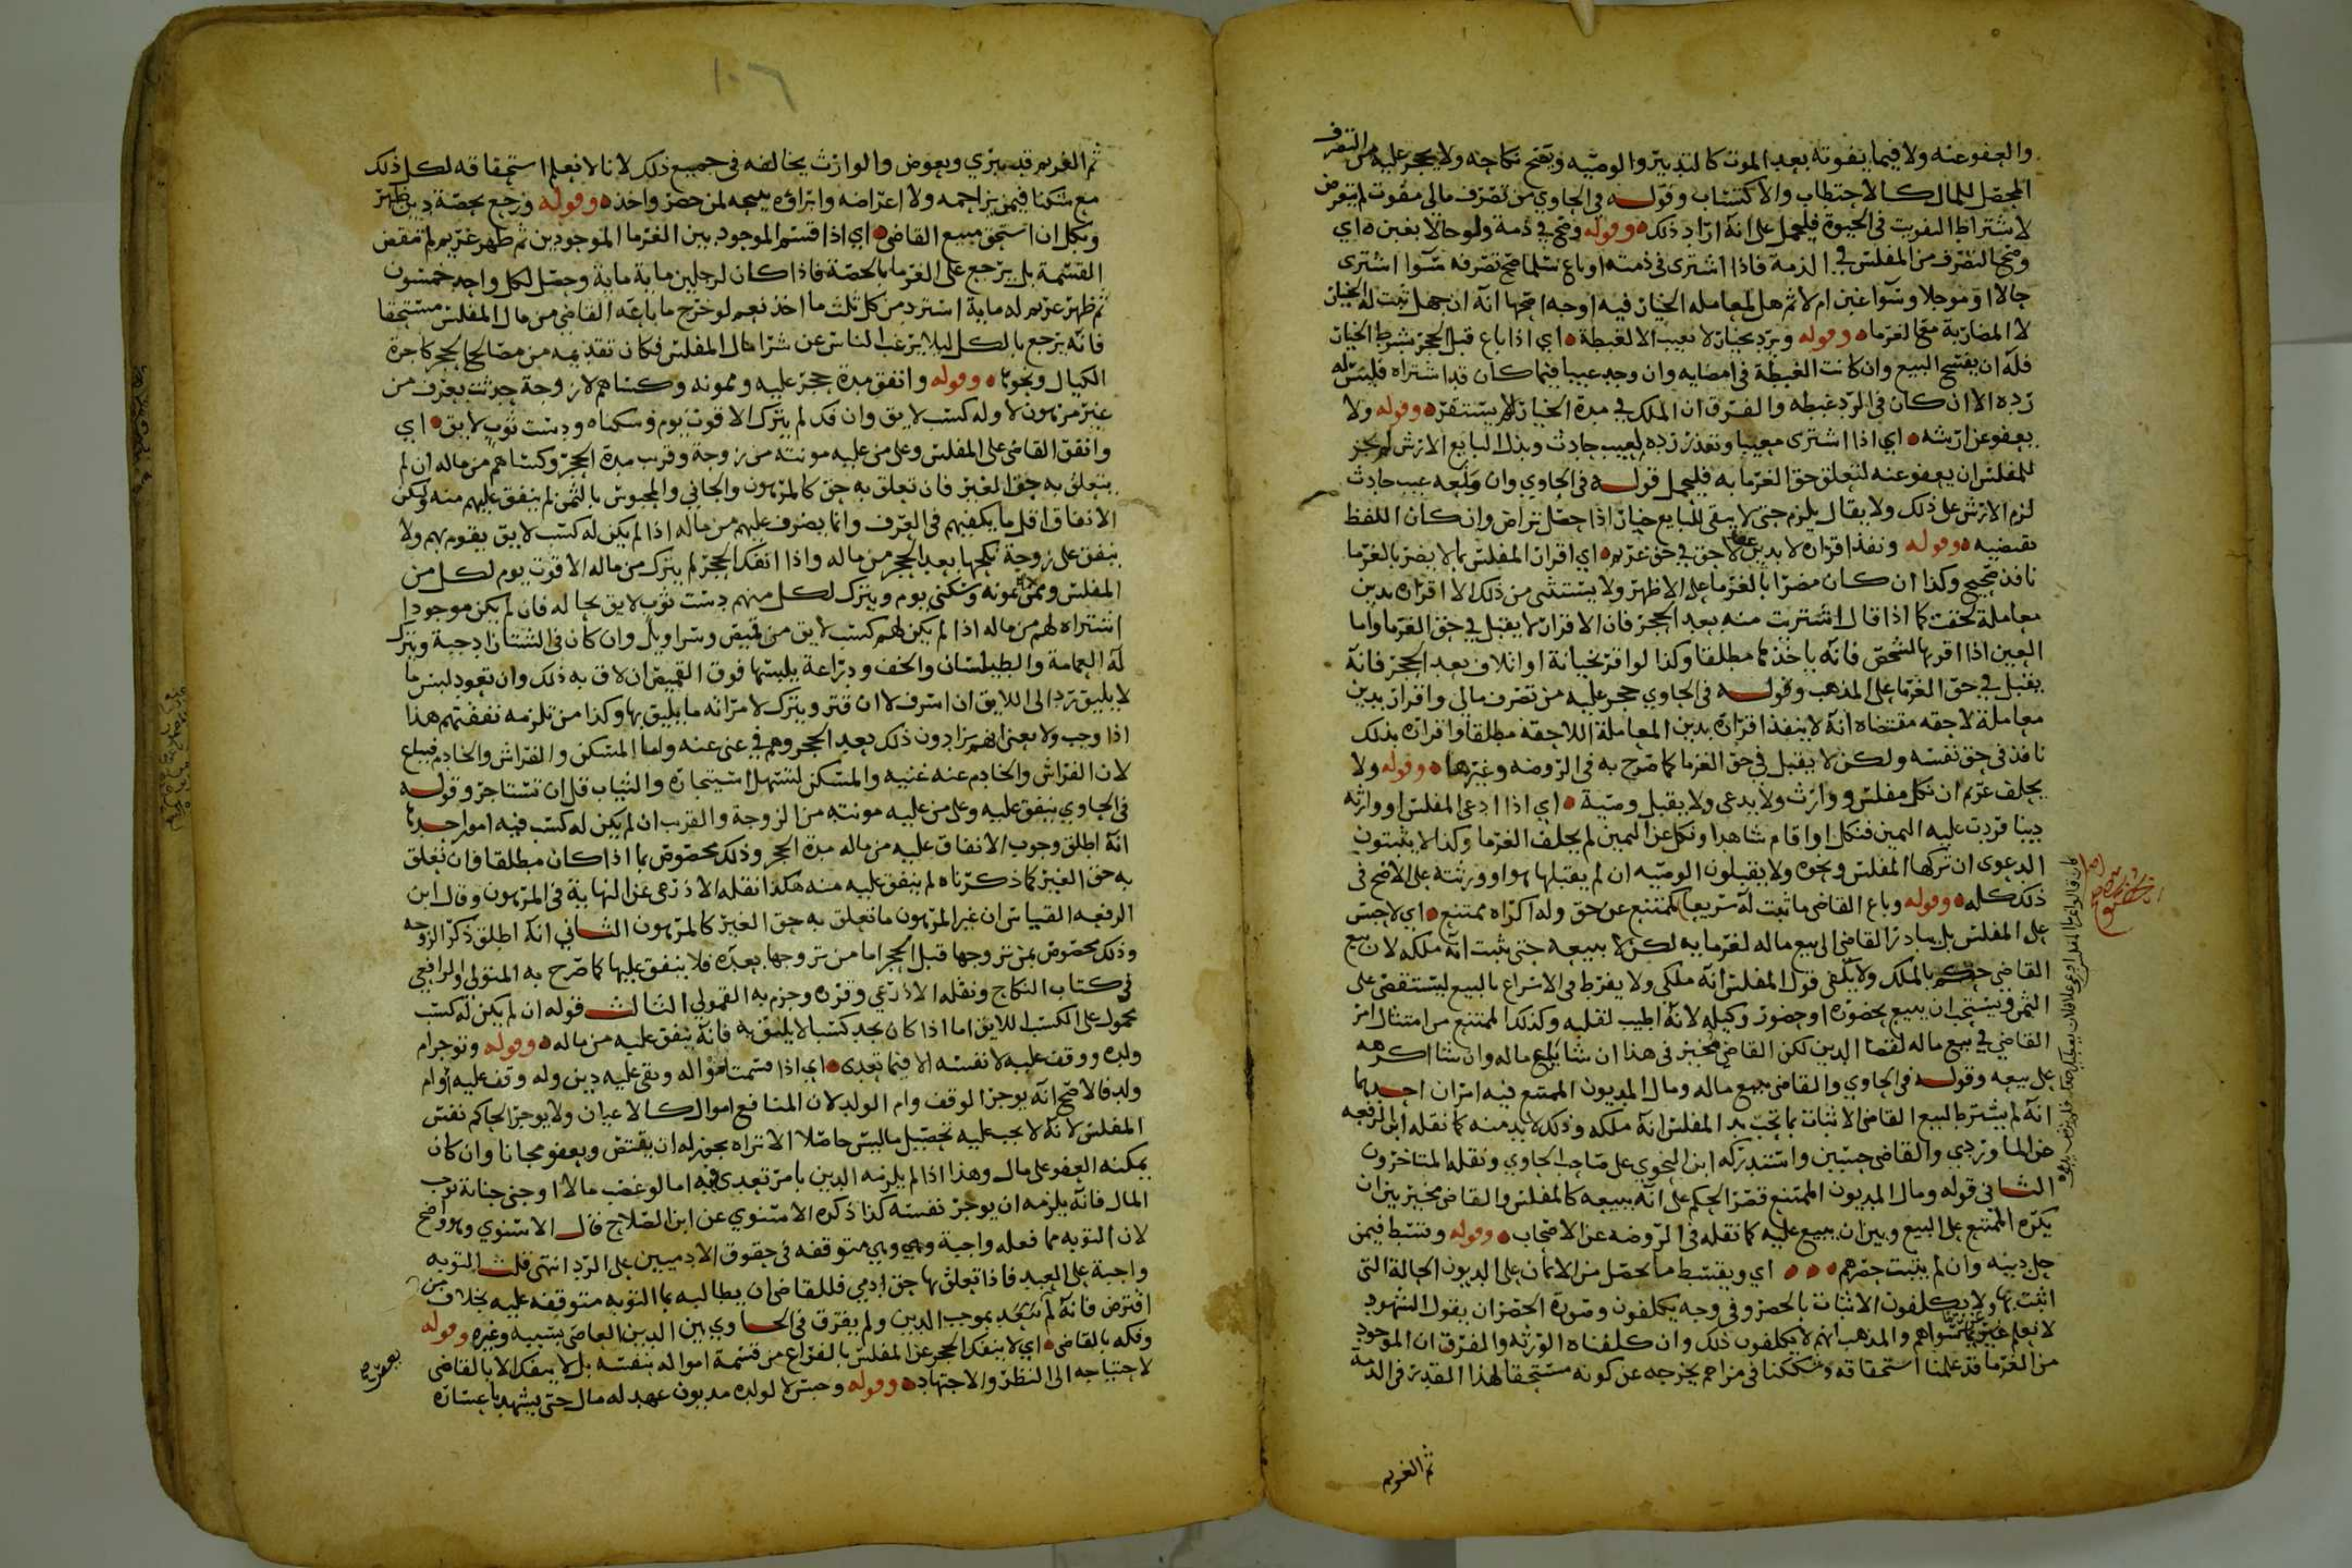 والعفو عنه ولا فيما يفوته بعد الموت كالتدبير والوصيه ويصح نكاحه ولا يحجر عليه من التصرف
المحصل للمال كالاحتطاب والاكتساب وقوله في الحاوي من تصرف مالي مفوت لم يتعرض
لاشتراط التفويت في الحيوة فليحمل على انه اراد ذلك ه وقوله وصح في ذمة ولو حالا بغبن ه اي
وصح التصرف من المفلس في الذمة فاذا اشترى في ذمته او باع سلما صح تصرفه سوا اشترى
حالا او موجلا وسوا غبن ام لا ثم هل لمعامله الخيار فيه اوجه اصحها انه ان جهل ثبت له الخيار
لا المضاربة مع الغرما ه وقوله ويرد بخيار لا بعيب الا لغبطة ه اي اذا باع قبل الحجر بشرط الخيار
فله ان يفسخ البيع وان كانت الغبطة في امضايه وان وجد عيبا فيما كان قد اشتراه فليس له
رده الا ان كان في الرد غبطه والفرق ان الملك في مدة الخيار لم يستقر ه وقوله ولا
يعفو عن ارشه ه اي اذا اشترى معيبا وتعذر رده لعيب حادث وبذل البايع الارش لم يجز
للمفلس ان يعفو عنه لتعلق حق الغرما به فليحمل قوله في الحاوي وان منعه عيب حادث
لزم الارش على ذلك ولا يقال يلزم حتى لا يبقى للبايع خيار اذا حصل تراض وان كان اللفظ
يقتضيه ه وقوله ونفذ اقراره لا بدين معاملة لاحق في حق غريم ه اي اقرار المفلس بما لا يضر بالغرما
نافذ صحيح وكذا ان كان مضرا بالغرما على الاظهر ولا يستثنى من ذلك الا اقراره بدين
معاملة لحقت كما اذا قال اشتريت منه بعد الحجر فان الاقرار لا يقبل في حق الغرما واما
العين اذا اقر بها لشخص فانه ياخذها مطلقا وكذا لو اقر بجناية او اتلاف بعد الحجر فانه
يقبل في حق الغرما على المذهب وقوله في الحاوي حجر عليه من تصرف مالي واقرار بدين
معاملة لاحقه مقتضاه انه لا ينفذ اقراره بدين المعاملة اللاحقة مطلقا واقراره بذلك
نافذ في حق نفسه ولكن لا يقبل في حق الغرما كما صرح به في الروضه وغيرها ه وقوله ولا
يحلف غريم ان نكل مفلس ووارث ولا يدعي ولا يقبل وصية ه اي اذا ادعى المفلس او وارثه
دينا فردت عليه اليمين فنكل او اقام شاهدا ونكل عن اليمين لم يحلف الغرما وكذا لا يثبتون
الدعوى ان تركها المفلس ونحوه ولا يقبلون الوصيه ان لم يقبلها هو او ورثته على الاصح في
ذلك كله ه وقوله وباع القاضي ما ثبت له سريعا كممتنع عن حق وله اكراه ممتنع ه اي لا حبس
على المفلس بل يبادر القاضي الى بيع ماله لغرمايه لكن لا يبيعه حتى يثبت انه ملكه لان بيع
القاضي حكم بالملك ولا يكفي قول المفلس انه ملكي ولا يفرط في الاسراع بالبيع ليستقصى على
الثمن ويستحب ان يبيع بحضوره او حضور وكيله لانه اطيب لقلبه وكذلك الممتنع من امتثال امر
القاضي في بيع ماله لقضا الدين لكن القاضي مخير في هذا ان شا يبيع ماله وان شا اكرهه
على بيعه وقوله في الحاوي والقاضي يبيع ماله ومال المديون الممتنع فيه امران احدهما
انه لم يشترط لبيع القاضي الاثبات بما تحت يد المفلس انه ملكه وذلك لا بد منه كما نقله ابن الرفعه
عن الماوردي والقاضي حسين واستدركه ابن النحوي على صاحب الحاوي ونقله المتاخرون
الثاني قوله ومال المديون الممتنع قصر الحكم على انه يبيعه كالمفلس والقاضي مخير بين ان
يكره الممتنع على البيع وبين ان يبيع عليه كما نقله في الروضه عن الاصحاب ه وقوله وقسط فيمن
حل دينه وان لم يثبت حصرهم ه ه ه اي ويقسط ما تحصل من الاثمان على الديون الحالة التي
اثبت بها ولا يكلفون الاثبات بالحصر وفي وجه يكلفون وصورة الحصر ان يقول الشهود
لا نعلم غريما سواهم والمذهب انهم لا يكلفون ذلك وان كلفناه الورثه والفرق ان الموجود
من الغرما قد علمنا استحقاقه وشككنا في مزاحم يخرجه عن كونه مستحقا لهذا القدر في الذمة
ثم الغريم
١٠٦
ثم الغريم قد يبري ويعوض والوارث يخالفه في جميع ذلك لانا لا نعلم استحقاقه لكل ذلك
مع شكنا فيمن يزاحمه ولا اعراضه وابراؤه يبيحه لمن حضر واخذه ه وقوله ورجع بحصة دين ظهر
وبكل ان استحق مبيع القاضي ه اي اذا قسم الموجود بين الغرما الموجودين ثم ظهر غريم لم تنقض
القسمة بل يرجع على الغرما بالحصة فاذا كان لرجلين ماية ماية وحصل لكل واحد خمسون
ثم ظهر غريم له ماية استرد من كل ثلث ما اخذ نعم لو خرج ما باعه القاضي من مال المفلس مستحقا
فانه يرجع بالكل ليلا يرغب الناس عن شرا مال المفلس فكان تقديمه من مصالح الحجر كاجرة
الكيال ونحوها ه وقوله وانفق مدة حجر عليه وممونه وكساهم لا زوجة حدثت بعرف من
غير مرهون لا وله كسب لايق وان فك لم يترك الا قوت يوم وسكناه ودست ثوب لايق ه اي
وانفق القاضي على المفلس وعلى من عليه مونته من زوجة وقريب مدة الحجر وكساهم من ماله ان لم
يتعلق به حق الغير فان تعلق به حق كالمرهون والجاني والمحبوس بالثمن لم ينفق عليهم منه وليكن
الانفاق اقل ما يكفيهم في العرف وانما يصرف عليهم من ماله اذا لم يكن له كسب لايق يقوم بهم ولا
ينفق على زوجة نكحها بعد الحجر من ماله واذا انفك الحجر لم يترك من ماله الا قوت يوم لكل من
المفلس وممن يمونه وسكنى يوم ويترك لكل منهم دست ثوب لايق بحاله فان لم يكن موجودا
اشتراه لهم من ماله اذا لم يكن لهم كسب لايق من قميص وسراويل وان كان في الشتا زاد جبة ويترك
له العمامة والطيلسان والخف ودراعة يلبسها فوق القميص ان لاق به ذلك وان تعود لبس ما
لا يليق رد الى اللايق ان اسرف لا ان قتر ويترك لامراته ما يليق بها وكذا من تلزمه نفقتهم هذا
لان الفراش والخادم عنه غنيه والمسكن لتسهل استيجاره والثياب قل ان تستاجر وقوله
في الحاوي ينفق عليه وعلى من عليه مونته من الزوجة والقريب ان لم يكن له كسب فيه امور احدها
انه اطلق وجوب الانفاق عليه من ماله مدة الحجر وذلك مخصوص بما اذا كان مطلقا فان تعلق
به حق الغير كما ذكرناه لم ينفق عليه منه هكذا نقله الاذرعي عن النهاية في المرهون وقال ابن
الرفعه القياس ان غير المرهون ما تعلق به حق الغير كالمرهون الثاني انه اطلق ذكر الزوجه
وذلك مخصوص بمن تزوجها قبل الحجر اما من تزوجها بعده فلا ينفق عليها كما صرح به المتولي والرافعي
في كتاب النكاح ونقله الاذرعي وقرره وجزم به القمولي الثالث قوله ان لم يكن له كسب
محمول على الكسب اللايق اما اذا كان يجد كسبا لا يليق به فانه ينفق عليه من ماله ه وقوله وتوجر ام
ولده ووقف عليه لا نفسه الا فيما تعدى ه اي اذا قسمت امواله وبقي عليه دين وله وقف عليه او ام
ولد فالاصح انه يوجر الوقف وام الولد لان المنافع اموال كالاعيان ولا يوجر الحاكم نفس
المفلس لانه لا يجب عليه تحصيل ما ليس حاصلا الا تراه يجوز له ان يقتص ويعفو مجانا وان كان
يمكنه العفو على مال وهذا اذا لم يلزمه الدين بامر تعدى فيه اما لو غصب مالا او جنى جناية توجب
المال فانه يلزمه ان يوجر نفسه كذا ذكره الاسنوي عن ابن الصلاح قال الاسنوي وهو واضح
لان التوبه مما فعله واجبة وهي متوقفه في حقوق الادميين على الرد انتهى قلت التوبه
واجبة على العبد فاذا تعلق بها حق ادمي فللقاضي ان يطالبه بما التوبه متوقفه عليه بخلاف من
اقترض فانه لم يتعد بموجب الدين ولم يفرق في الحاوي بين الدين العاصي بسببه وغيره وقوله
وفكه بالقاضي ه اي لا ينفك الحجر عن المفلس بالفراغ من قسمة امواله بنفسه بل لا ينفك الا بالقاضي
لاحتياجه الى النظر والاجتهاد ه وقوله وحبس لا لولده مديون عهد له مال حتى يشهد باعساره